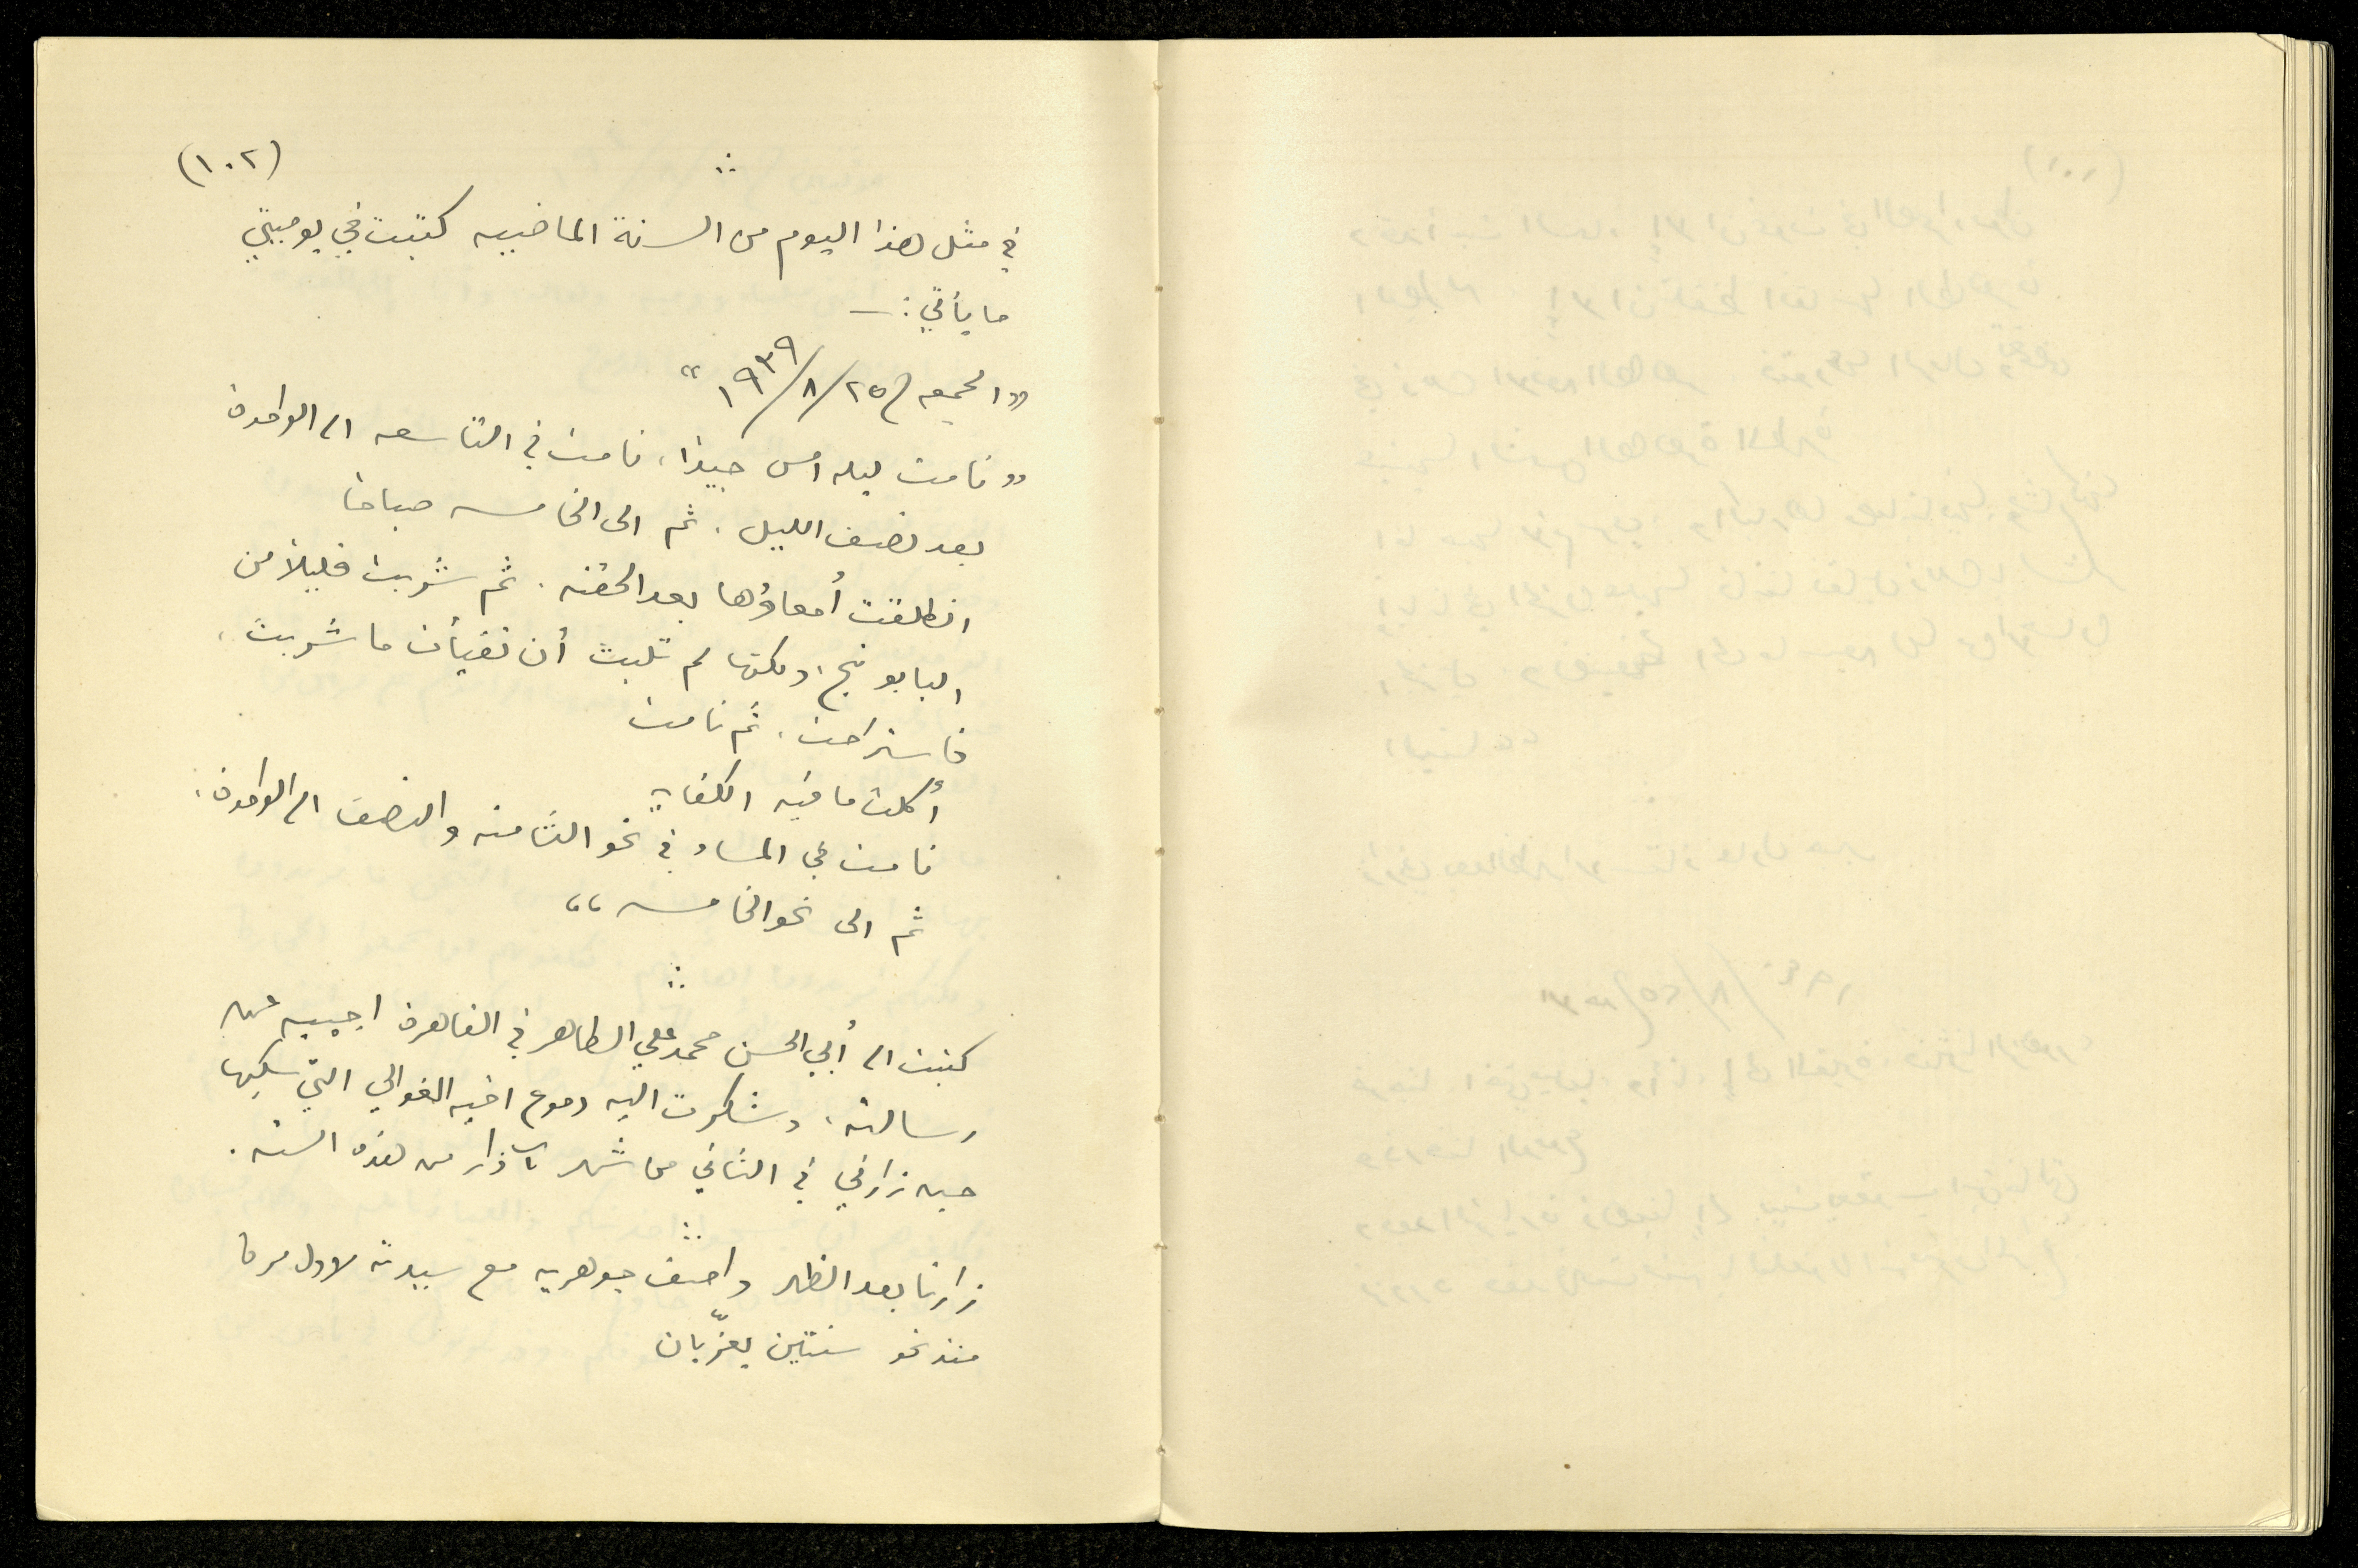 (١٠٢)
في مثل هذا اليوم من السنة الماضيه كتبت في يوميتي
ما يأتي: —
"الجمعه ٢٥/٨/١٩٣٩"
"نامت ليله امس جيدا، نامت في التاسعه الى الواحدة
بعد نصف الليل، ثم الى الخامسه صباحا
انطلقت أمعاؤها بعد الحقنه. ثم شربت قليلا من
البابونج، ولكنها لم تلبث أن تقيأت ما شربت،
فاستراحت، ثم نامت
أكلت ما فيه الكفايه
نامت في المساء في نحو الثامنه والنصف الى الواحدة،
ثم الى نحو الخامسه"
كتبت الى أبي الحسن محمد علي الطاهر في القاهرة اجيبه عن
رسالته، وشكرت اليه دموع اخيه الغوالي التي سكبها
حين زارني في الثاني من شهر آذار من هذه السنه.
زارنا بعد الظهر واصف جوهريه مع سيدته لاول مرة
منذ نحو سنتين يعزّيان